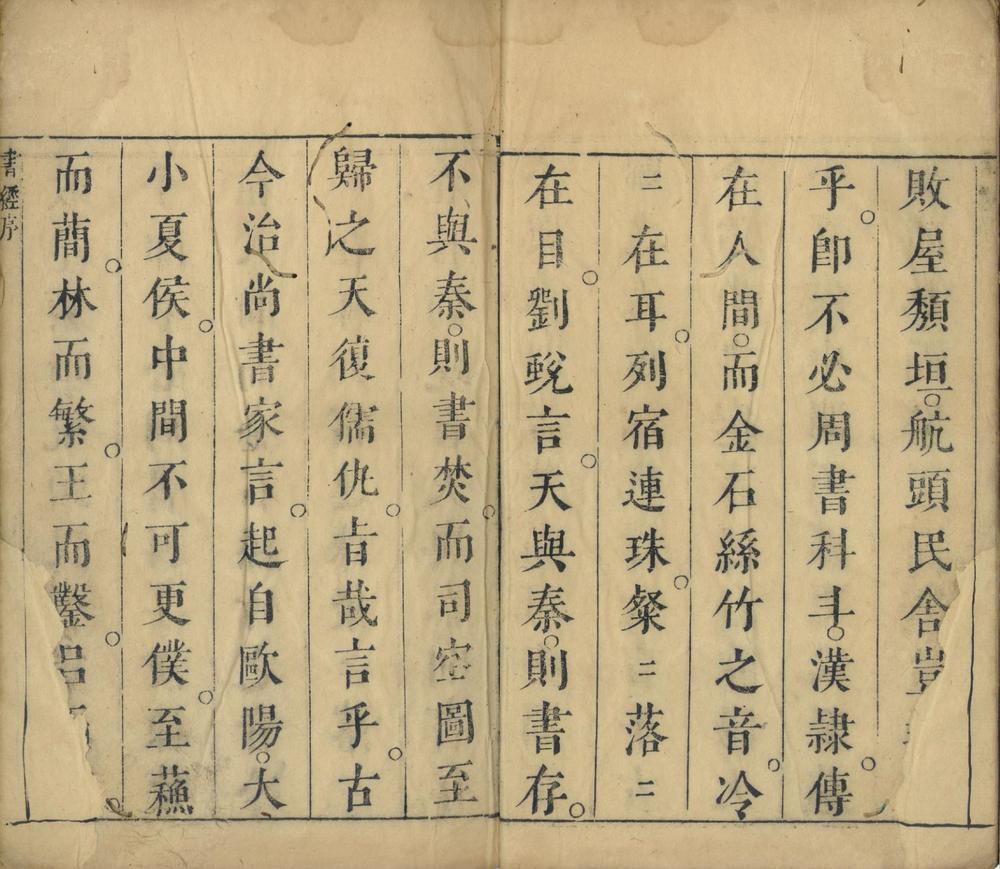 敗屋頽垣○航頭民舍豈
乎○卽不必周書科斗○漢隷傳○
在人間○而金石絲竹之音○冷
二在耳○列宿連珠○粲二落二
在目○劉蛻言○天與秦○則書存○
不與秦○則書焚○而司空圖至
歸之天復儒仇○旨哉言乎○古
今治尚書家言○起自歐陽○大
小夏侯○中間不可更僕○至蘓
而蕑○林而繁○王而鑿○呂
書經序